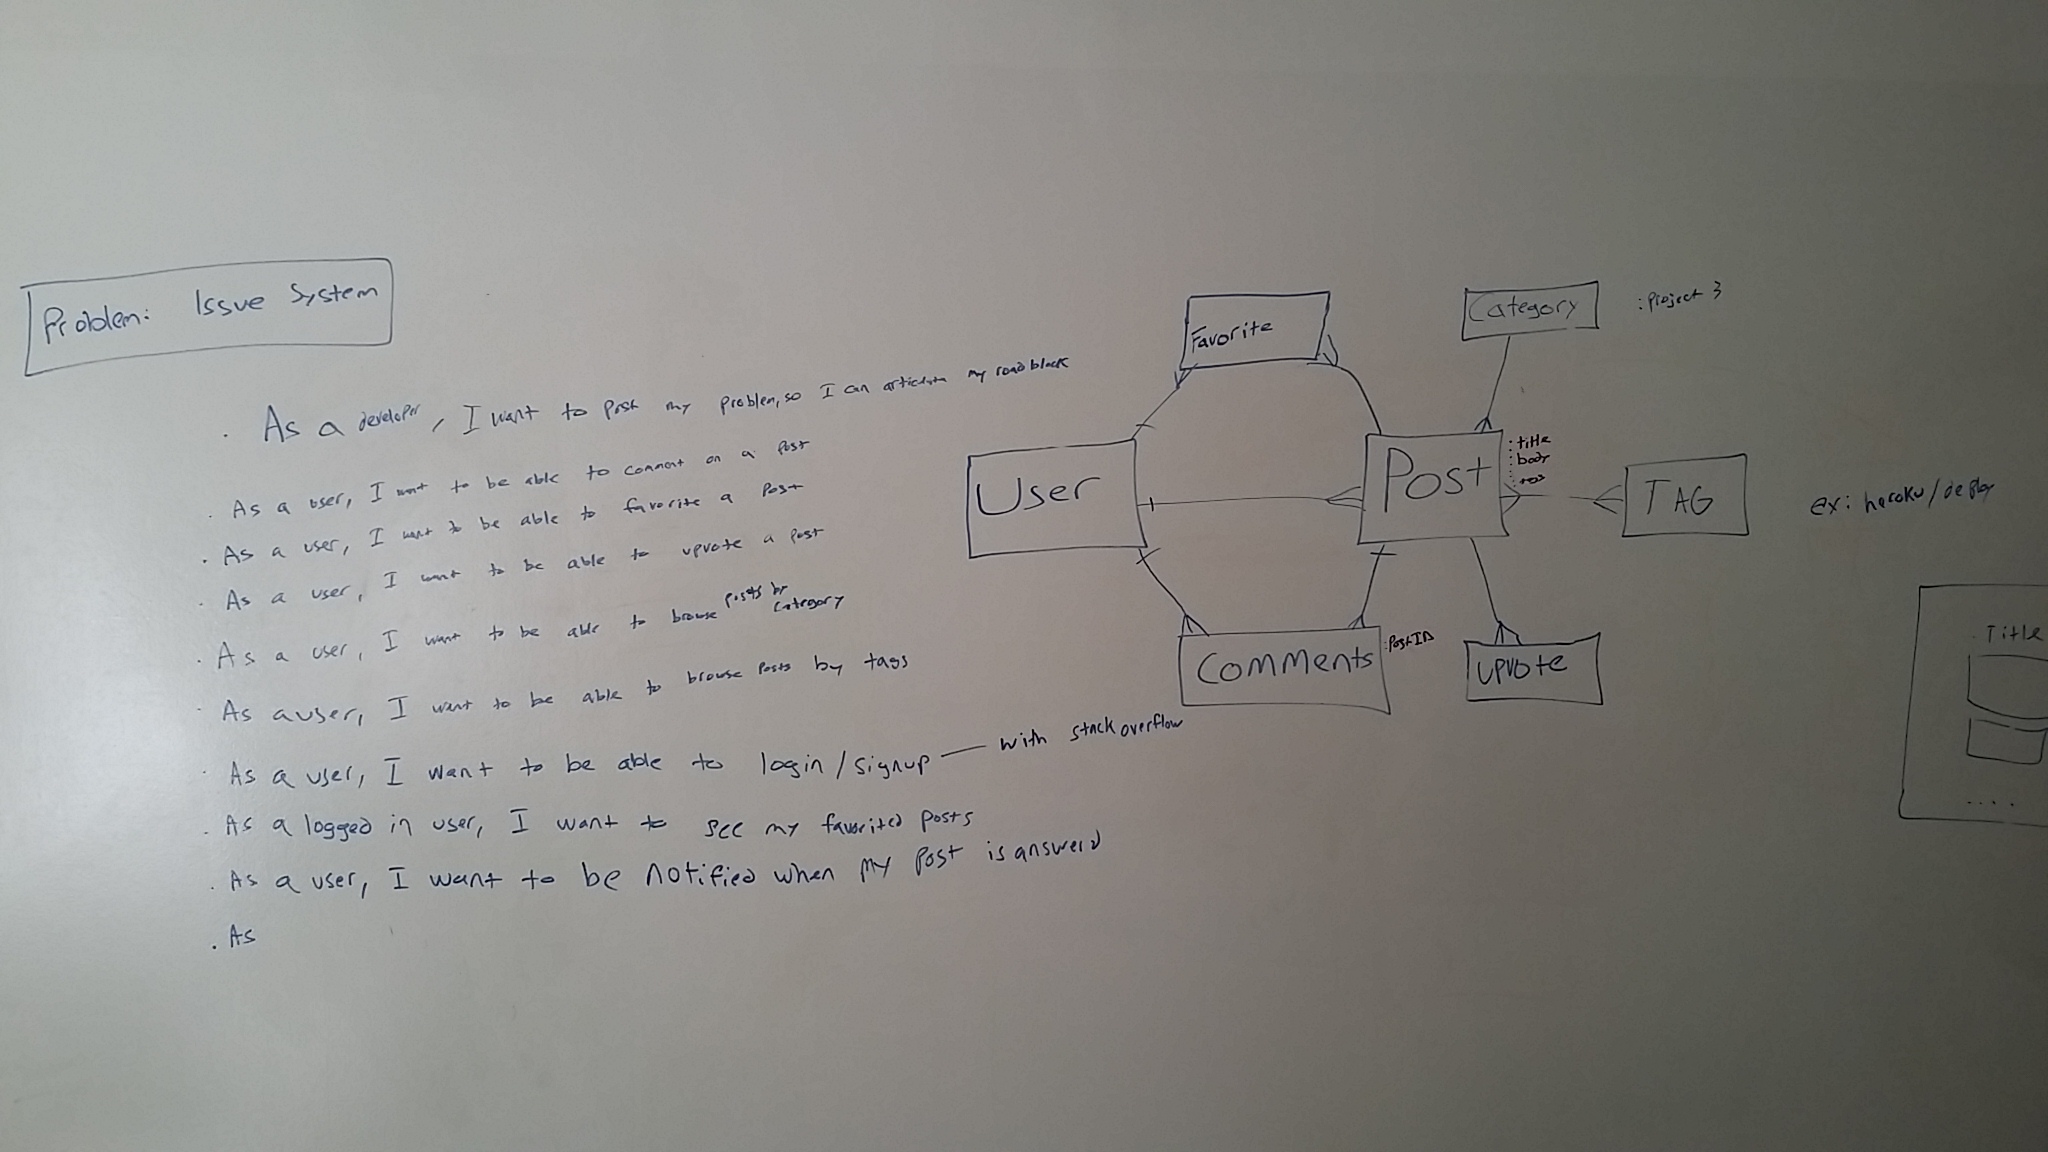 Problem: Issue System
. As a developer, I want to post my problem, so I can articulate my roadblock
. As a user, I want to be able to comment on a post
. As a user, I want to be able to favorite a post
. As a user, I want to be able to upvote a post
. As a user, I want to be able to browse posts by category
. As a user, I want to be able to browse posts by tags
. As a user, I want to be able to login/signup — with stack overflow
. As a logged in user, I want to see my favorited posts
. As a user, I want to be notified when my post is answerd
. As
Favorite
Category
:project 3
User
Post
:title
:body
TAG
ex: heroku/deploy
Comments
:PostID
upvote
Title
....